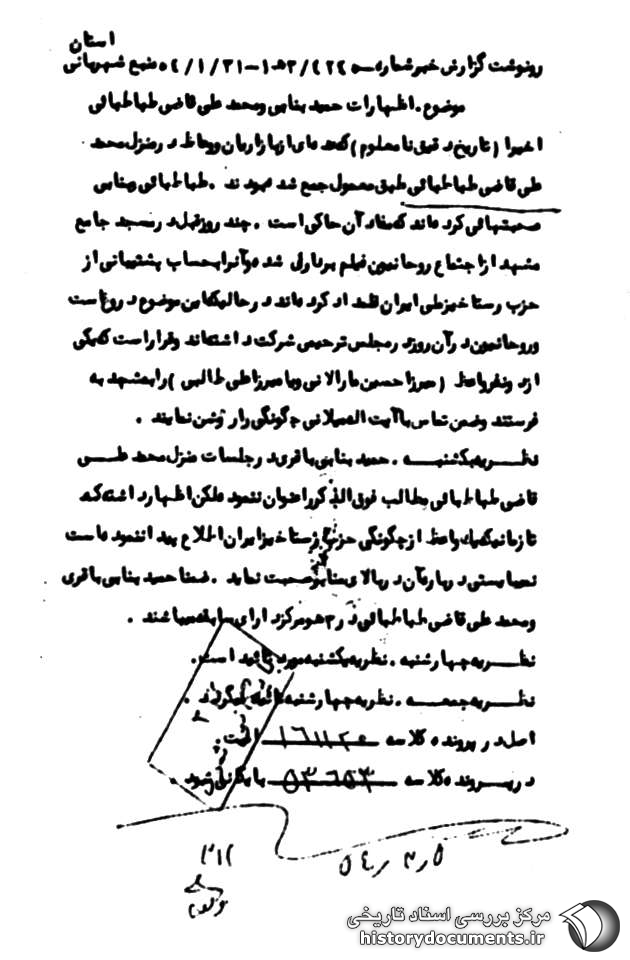 استان
رونوشت گزارش خبر شماره ۴۲۴/۳ه۱-۵۴/۱/۳۱ منبع شهربانی
موضوع. اظهارات حمید بنابی و محمد علی قاضی طباطبائی
اخیرا (تاریخ دقیق نامعلوم) که عده‌ای از بازاریان و وعاظ در منزل محمد
علی قاضی طباطبائی طبق معمول جمع شده بودند. طباطبائی و بنابی
صحبتهائی کرده‌اند که مفاد آن حاکی است. چند روز قبل در مسجد جامع
مشهد از اجتماع روحانیون فیلم برداری شده و آنرا بحساب پشتیبانی از
حزب رستاخیز ملی ایران قلمداد کرده‌اند در حالیکه این موضوع دروغ است
و روحانیون در آن روز در مجلس ترحیمی شرکت داشته‌اند و قرار است که یکی
از دو نفر واعظ (میرزا حسین مارالانی و یا میرزا علی طالبی) را به مشهد به
فرستند و ضمن تماس با آیت اله میلانی چگونگی را روشن نمایند.
نظریه یکشنبه. حمید بنابی باقری در جلسات منزل محمد علی
قاضی طباطبائی مطالب فوق الذکر را عنوان ننمود ولکن اظهار داشته که
تا زمانیکه یک واعظ از چگونگی حزب رستاخیز ایران اطلاع پیدا ننموده است
نمیبایستی درباره آن در بالای منابر صحبت نماید. ضمنا حمید بنابی باقری
و محمد علی قاضی طباطبائی در ۳ه و مرکز دارای سابقه میباشند.
نظریه چهارشنبه. نظریه یکشنبه مورد تائید است.
نظریه جمعه. نظریه چهارشنبه تائید میگردد.
اصل در پرونده کلاسه است
در پرونده کلاسه ۵۳۶۵۳ بایگانی شود.
۵۴/۳/۵
۳۱۲
مرکز بررسی اسناد تاریخی
historydocuments.ir